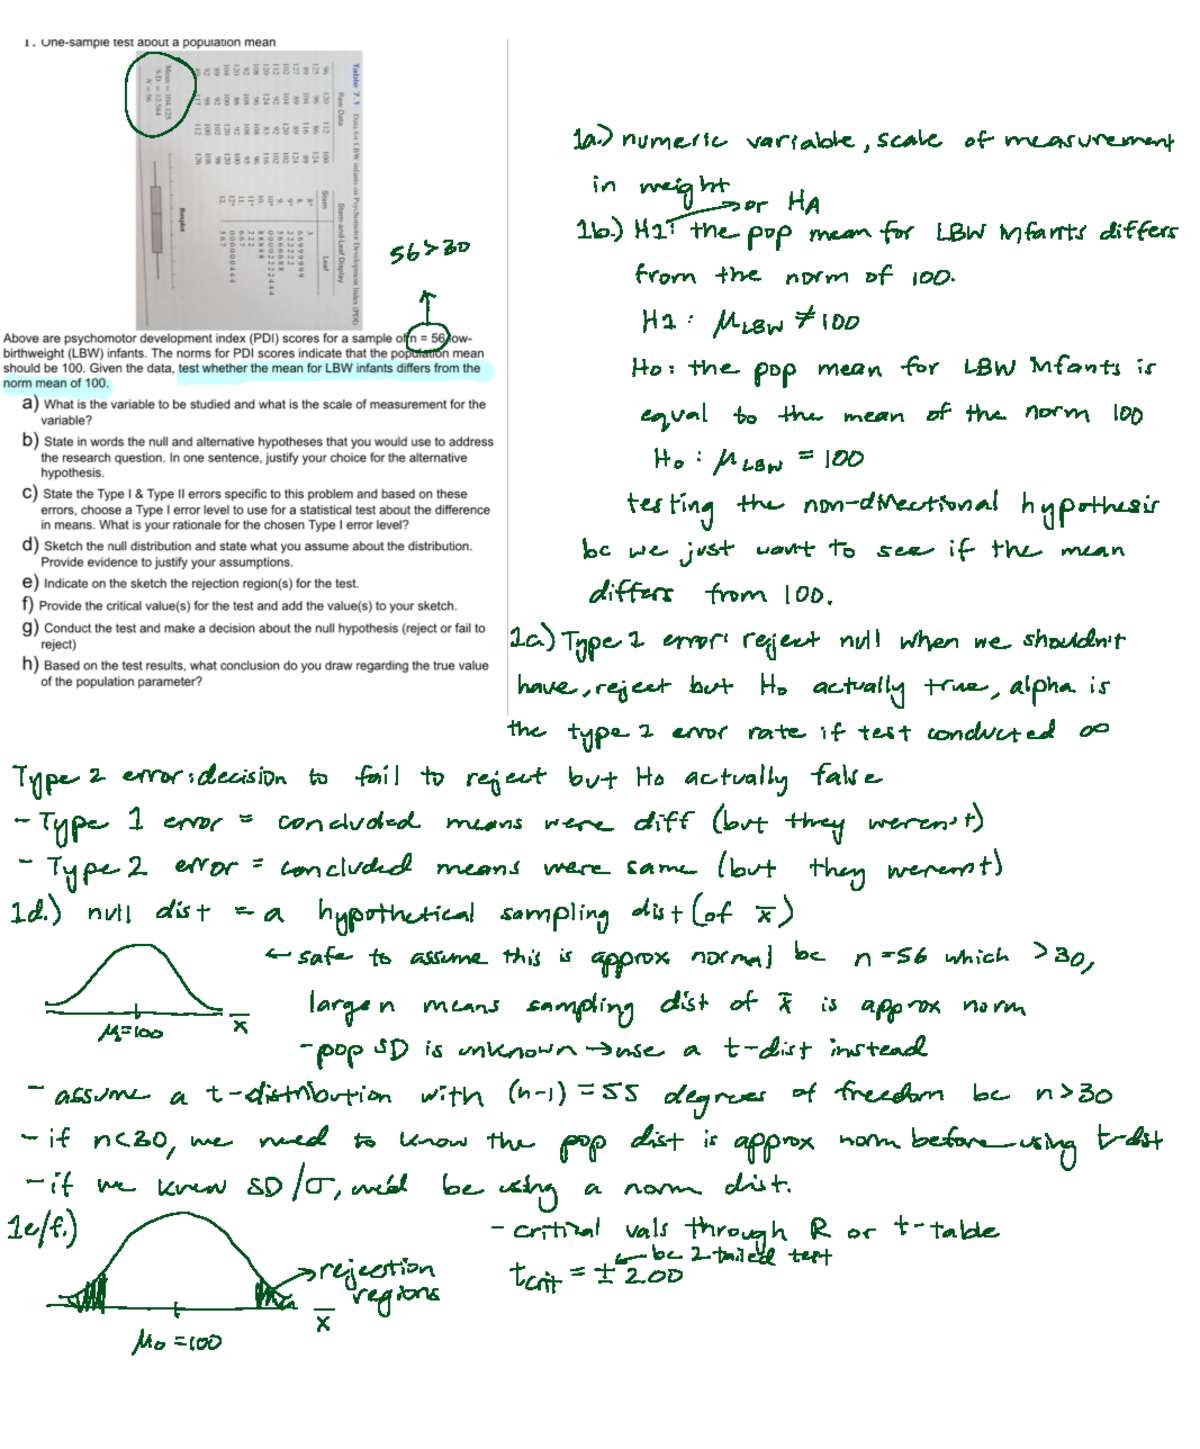 1. One-sample test about a population mean
Table 7.1 Data for LBW infants on Psychomotor Development Index (PDI)
Raw Data
Stem-and-Leaf Display
Stem
Leaf
Boxplot
Mean = 104.125
S.D. = 12.584
N = 56
56>30
Above are psychomotor development index (PDI) scores for a sample of n = 56 low-
birthweight (LBW) infants. The norms for PDI scores indicate that the population mean
should be 100. Given the data, test whether the mean for LBW infants differs from the
norm mean of 100.
a) What is the variable to be studied and what is the scale of measurement for the
variable?
b) State in words the null and alternative hypotheses that you would use to address
the research question. In one sentence, justify your choice for the alternative
hypothesis.
c) State the Type I & Type II errors specific to this problem and based on these
errors, choose a Type I error level to use for a statistical test about the difference
in means. What is your rationale for the chosen Type I error level?
d) Sketch the null distribution and state what you assume about the distribution.
Provide evidence to justify your assumptions.
e) Indicate on the sketch the rejection region(s) for the test.
f) Provide the critical value(s) for the test and add the value(s) to your sketch.
g) Conduct the test and make a decision about the null hypothesis (reject or fail to
reject)
h) Based on the test results, what conclusion do you draw regarding the true value
of the population parameter?
1a.) numeric variable, scale of measurement
in weight
or HA
1b.) H1: the pop mean for LBW infants differs
from the norm of 100.
H1: μLBW ≠ 100
Ho: the pop mean for LBW infants is
equal to the mean of the norm 100
Ho: μLBW = 100
testing the non-directional hypothesis
bc we just want to see if the mean
differs from 100.
1c) Type 1 error: reject null when we shouldn't
have, reject but Ho actually true, alpha is
the type 1 error rate if test conducted ∞
Type 2 error: decision to fail to reject but Ho actually false
- Type 1 error = concluded means were diff (but they weren't)
- Type 2 error = concluded means were same (but they weren't)
1d.) null dist = a hypothetical sampling dist (of x̄)
← safe to assume this is approx normal bc n=56 which >30,
large n means sampling dist of x̄ is approx norm
μ=100
x̄
- pop SD is unknown → use a t-dist instead
- assume a t-distribution with (n-1) = 55 degrees of freedom bc n>30
- if n<30, we need to know the pop dist is approx norm before using t-dist
- if we knew SD/σ, we'd be using a norm dist.
1e/f.)
- critical vals through R or t-table
← bc 2 tailed test
tcrit = ± 2.00
→ rejection
regions
x̄
μo = 100